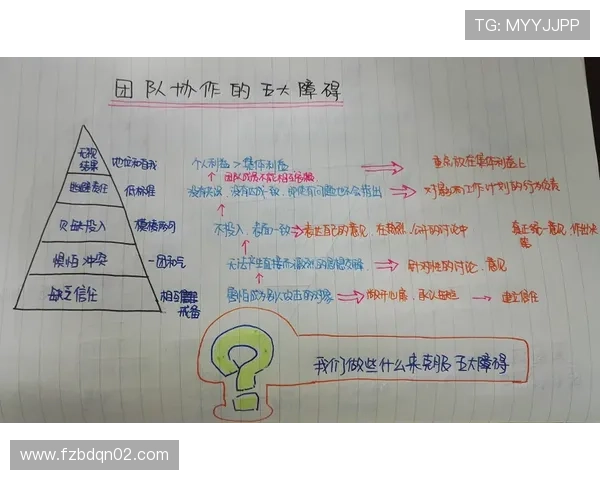 TG: MYYJJPP
团队协作的五大障碍
无视
结果
地位和自我
个人利益 > 集体利益
重点放在集体利益上
团队成员不能相互
逃避责任
低标准
没有决议,没有达成一致,即使有问题也不会指出
对影响工作计划的行为负责
欠缺投入
模棱两可
不投入,表面一致
表达自己的意见,在热烈、公开的讨论中
真正统一意见,作出决策
惧怕冲突
一团和气
无法产生直接而激烈的思想交锋
针对性的讨论、意见
缺乏信任
相互
戒备
害怕成为别人攻击的对象
敞开心扉,承认
建立信任
?
我们做些什么来克服五大障碍
www.fzbdqn02.com